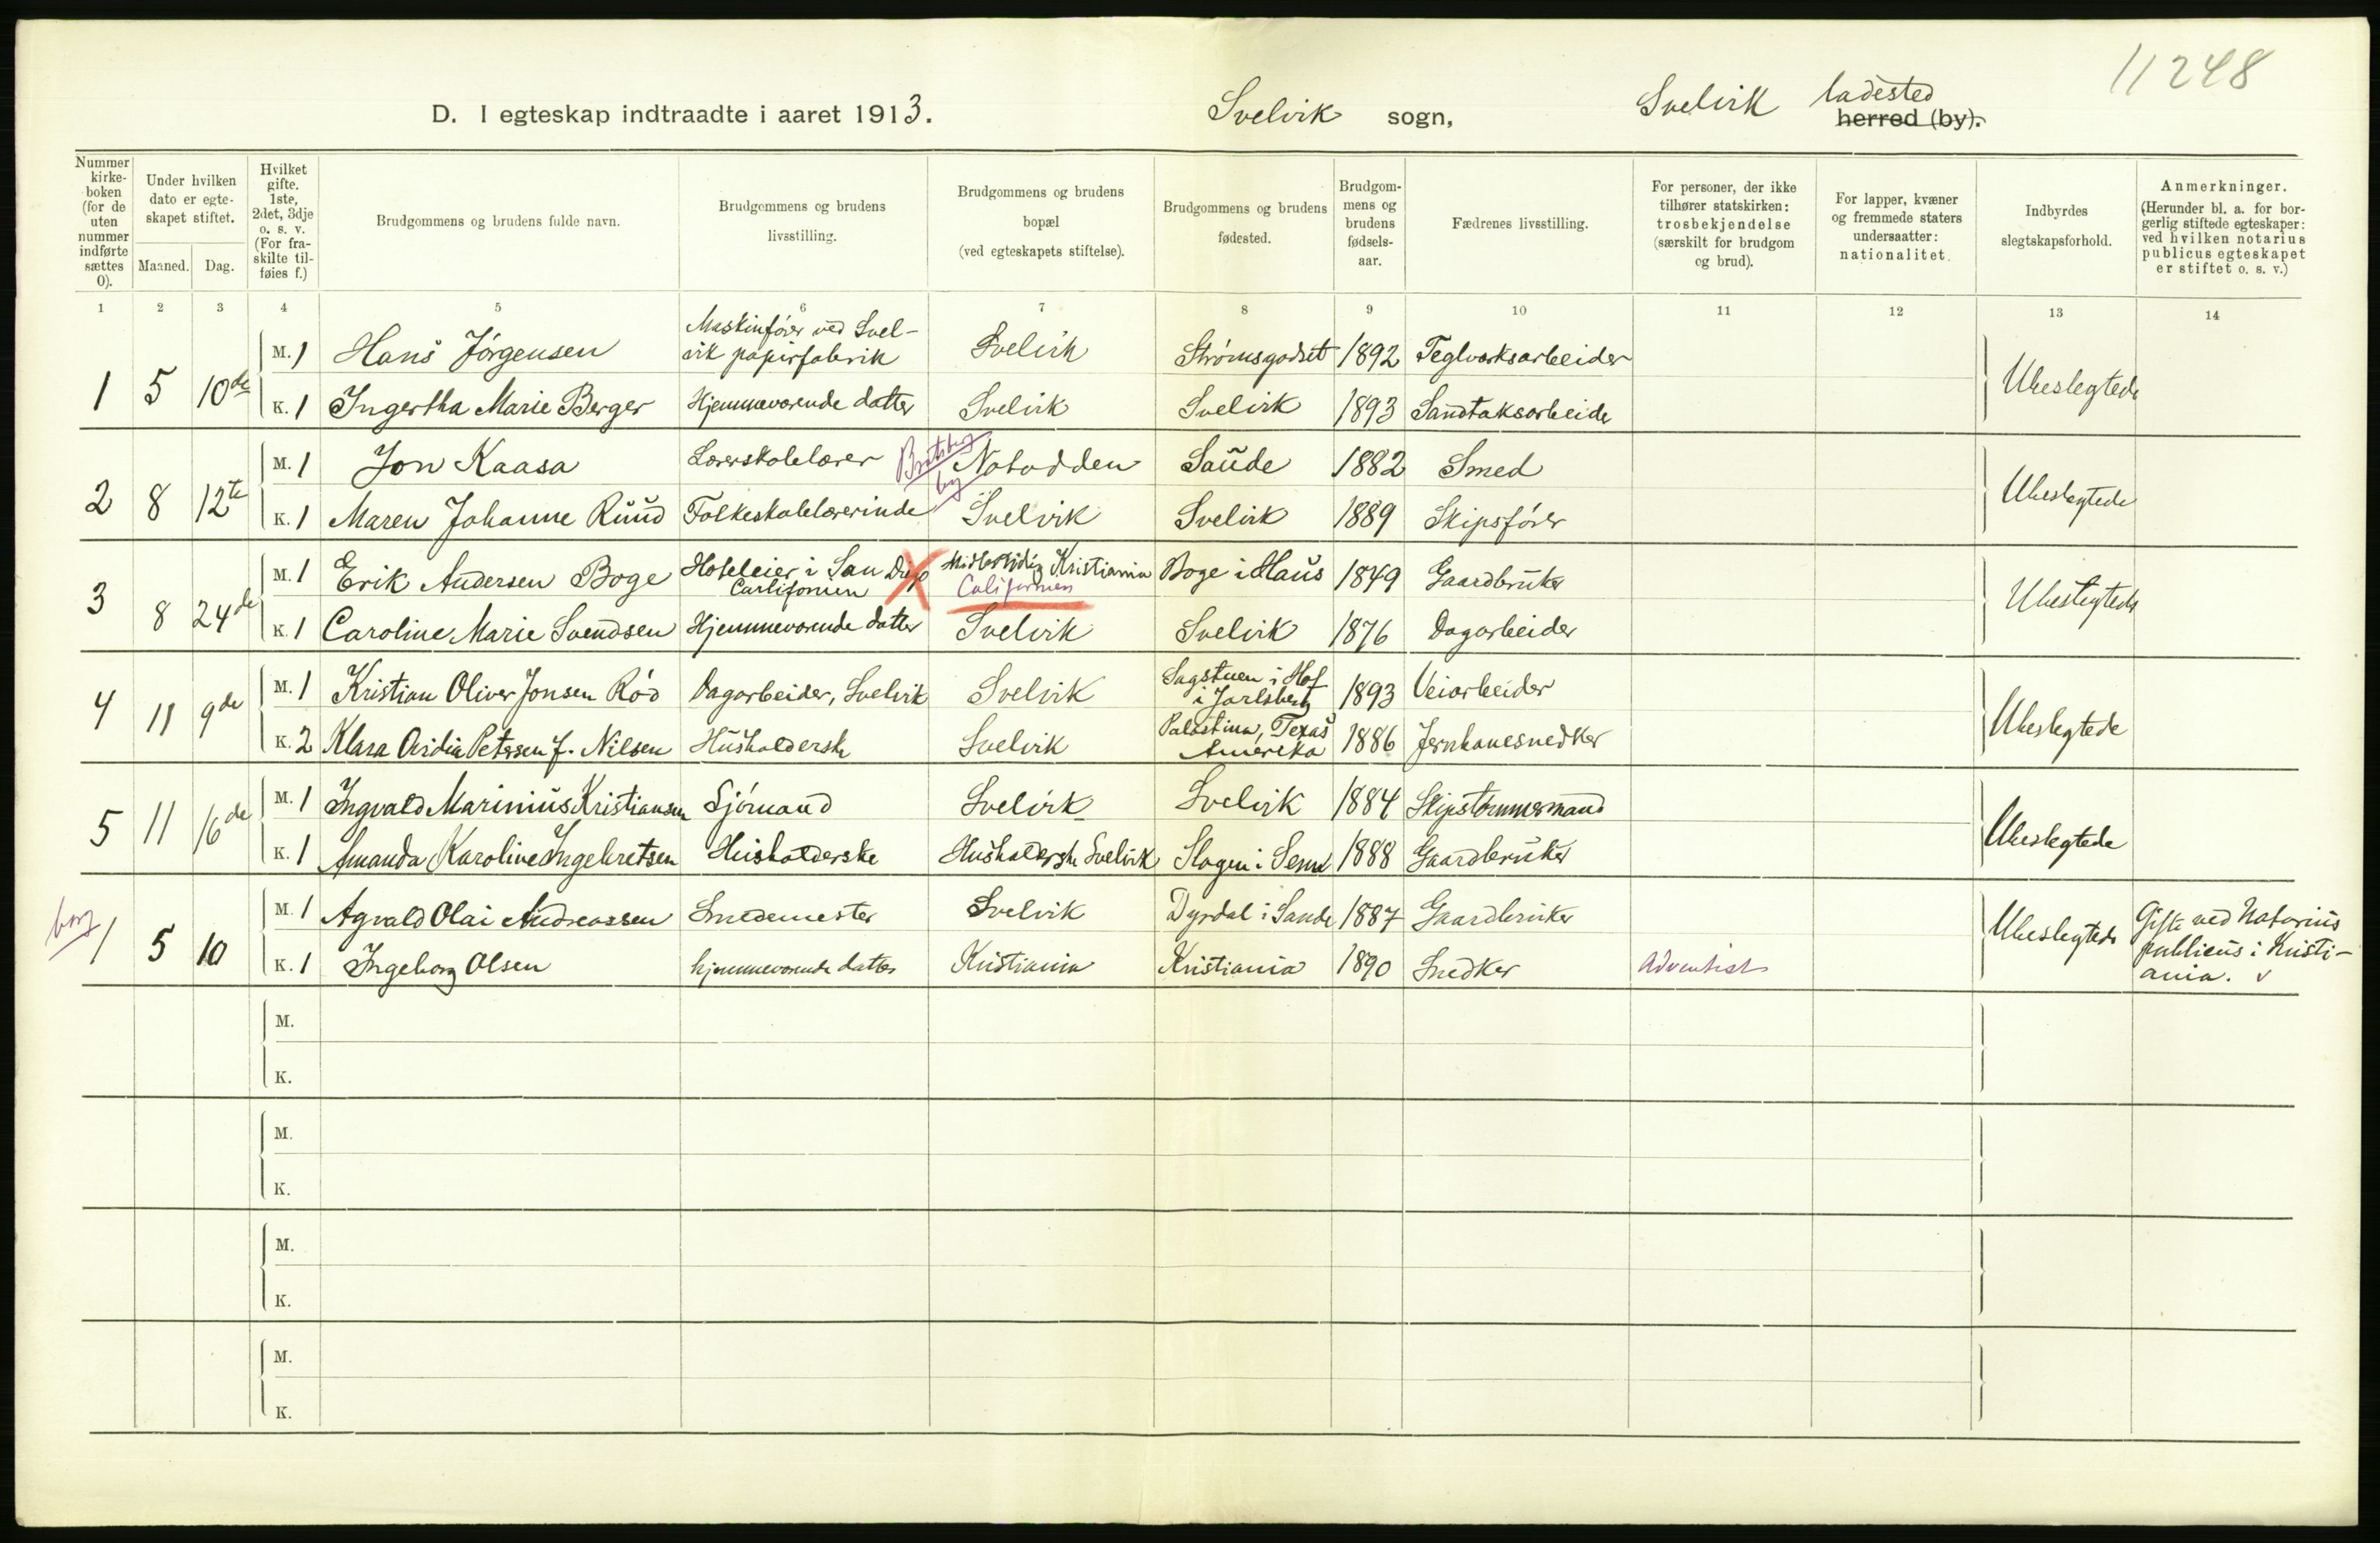 11248
D. I egteskap indtraadte i aaret 1913. Svelvik sogn, Svelvik ladested herred (by).
Nummer kirke-boken (for de uten nummer indførte sættes 0).
Under hvilken dato er egte-skapet stiftet.
Maaned. Dag.
Hvilket gifte. 1ste, 2det, 3dje o. s. v. (For fra-skilte til-føies f.)
Brudgommens og brudens fulde navn.
Brudgommens og brudens livsstilling.
Brudgommens og brudens bopæl (ved egteskapets stiftelse).
Brudgommens og brudens fødested.
Brudgom-mens og brudens fødsels-aar.
Fædrenes livsstilling.
For personer, der ikke tilhører statskirken: trosbekjendelse (særskilt for brudgom og brud).
For lapper, kvæner og fremmede staters undersaatter: nationalitet.
Indbyrdes slegtskapsforhold.
Anmerkninger. (Herunder bl. a. for bor-gerlig stiftede egteskaper: ved hvilken notarius publicus egteskapet er stiftet o. s. v.)
1 2 3 4 5 6 7 8 9 10 11 12 13 14
1 5 10de
M. 1 Hans Jörgensen Maskinfører ved Svel-vik papirfabrik Svelvik Strømsgodset 1892 Teglverksarbeider Ubeslegtede
K. 1 Ingertha Marie Berger Hjemmeværende datter Svelvik Svelvik 1893 Sandtaksarbeide
2 8 12te
M. 1 Jon Kaasa Lærerskolelærer Bratsberg by Notodden Saude 1882 Smed Ubeslegtede
K. 1 Maren Johanne Ruud Folkeskolelærerinde Svelvik Svelvik 1889 Skipsfører
3 8 24de
M. 1 Erik Andersen Boge Hoteleier i San Diego Carlifornien Midlertidig Kristiania Californien Boge i Haus 1849 Gaardbruker Ubeslegtede
K. 1 Caroline Marie Svendsen Hjemmeværende datter Svelvik Svelvik 1876 Dagarbeider
4 11 9de
M. 1 Kristian Oliver Jonsen Röd Dagarbeider, Svelvik Svelvik Sagstuen i Hof i Jarlsberg 1893 Veiarbeider Ubeslegtede
K. 2 Klara Ovidia Petersen f. Nilsen Husholderske Svelvik Palæstina, Texas Amerika 1886 Jernbanesnedker
5 11 16de
M. 1 Ingvald Marinius Kristiansen Sjömand Svelvik Svelvik 1884 Skipstömmermand Ubeslegtede
K. 1 Amanda Karoline Ingebretsen Husholderske Husholderske Svelvik Slagen i Sem 1888 Gaardbruker
borg 1 5 10
M. 1 Agvald Olai Andreassen Smedemester Svelvik Dyrdal i Sande 1887 Gaardbruker Ubeslegtede Gifte ved Notarius publicus i Kristi-ania. v
K. 1 Ingeborg Olsen hjemmeværende datter Kristiania Kristiania 1890 Snedker Adventist
M.
K.
M.
K.
M.
K.
M.
K.